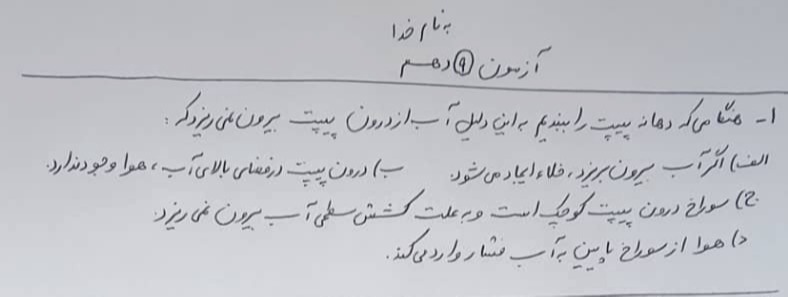 به نام خدا
آزمون ۹ دهم
۱- هنگامی که دهانه پیپت را ببندیم به این دلیل آب از درون پیپت بیرون نمی ریزد که:
الف) اگر آب بیرون بریزد، خلاء ایجاد می شود. ب) درون پیپت در فضای بالای آب، هوا وجود ندارد.
ج) سوراخ درون پیپت کوچک است و به علت کشش سطحی آب بیرون نمی ریزد.
د) هوا از سوراخ پایین به آب فشار وارد می کند.